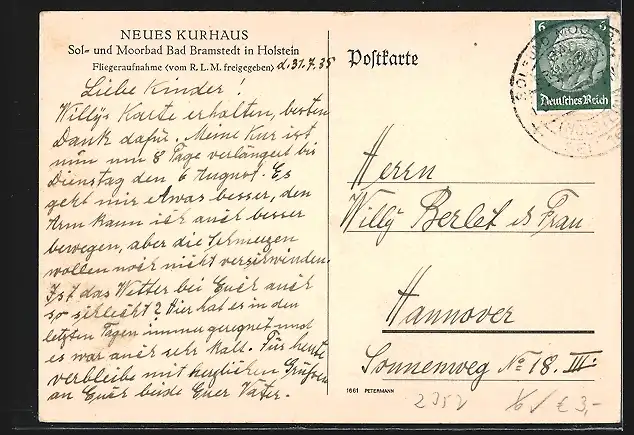 NEUES KURHAUS
Sol- und Moorbad Bad Bramstedt in Holstein
Fliegeraufnahme (vom R. L. M. freigegeben) d. 31.7.35
Liebe Kinder!
Willys Karte erhalten, besten
Dank dafür. Meine Kur ist
nun um 8 Tage verlängert bis
Dienstag den 6 August. Es
geht mir etwas besser, den
Arm kann ich auch besser
bewegen, aber die Schmerzen
wollen noch nicht verschwinden.
Ist das Wetter bei Euch auch
so schlecht? Hier hat es in den
letzten Tagen immer geregnet und
es war auch sehr kalt. Für heute
verbleibe mit herzlichen Grüßen
an Euch beide Euer Vater.
1661 PETERMANN
Postkarte
6
6
Deutsches Reich
Herrn
Willy Berlet & Frau
Hannover
Sonnenweg No 18. III.
2352
€ 3,-